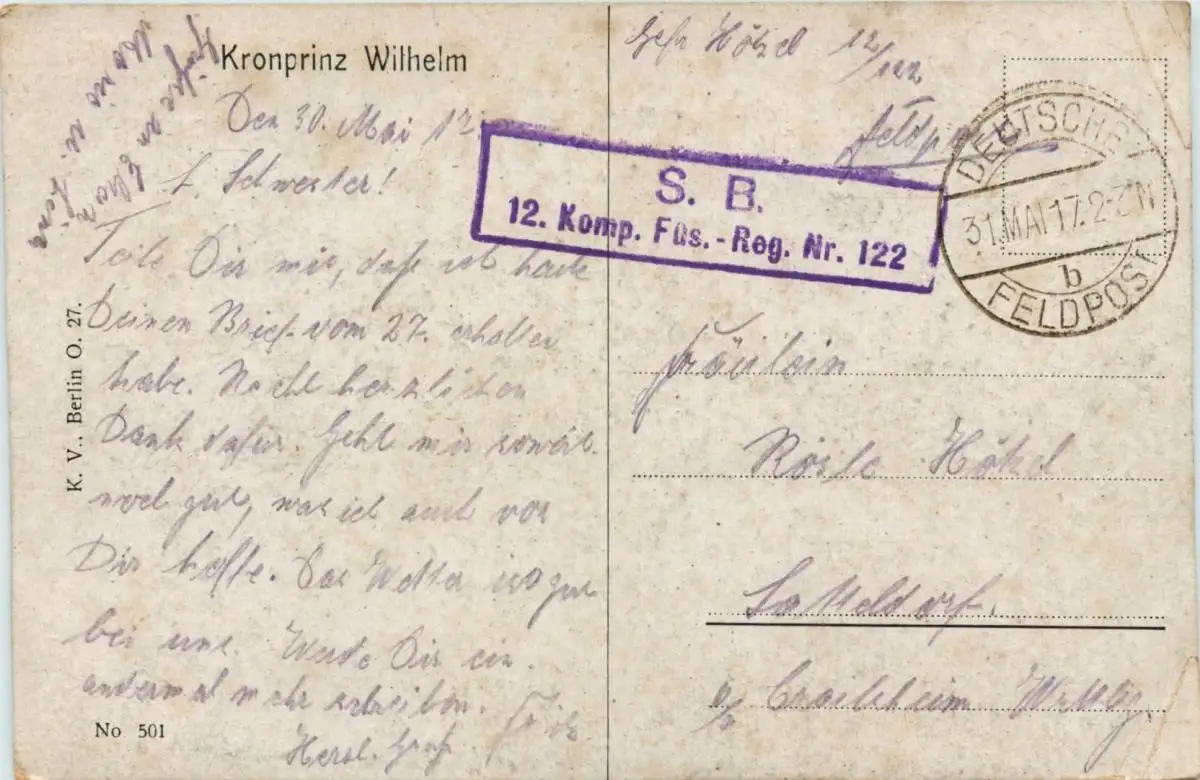 Kronprinz Wilhelm
Den 30. Mai 17.
L. Schwester!
Teile Dir mit, daß ich heute
Deinen Brief vom 27. erhalten
habe. Recht herzlichen
Dank dafür. Geht mir soweit
noch gut, was ich auch von
Dir hoffe. Das Wetter ist gut
bei uns. Werde Dir ein
andermal mehr schreiben.
Herzl. Gruß Fritz
Grüße an
K. V., Berlin O. 27.
No 501
Gefr Hötzel 12/122
Feldpost
S. B.
12. Komp. Füs.-Reg. Nr. 122
DEUTSCHE
31.MAI 17. 2-3 N
b
FELDPOST
Fräulein
Rösle Hötzel
Satteldorf.
a/ Crailsheim Wrttbg.